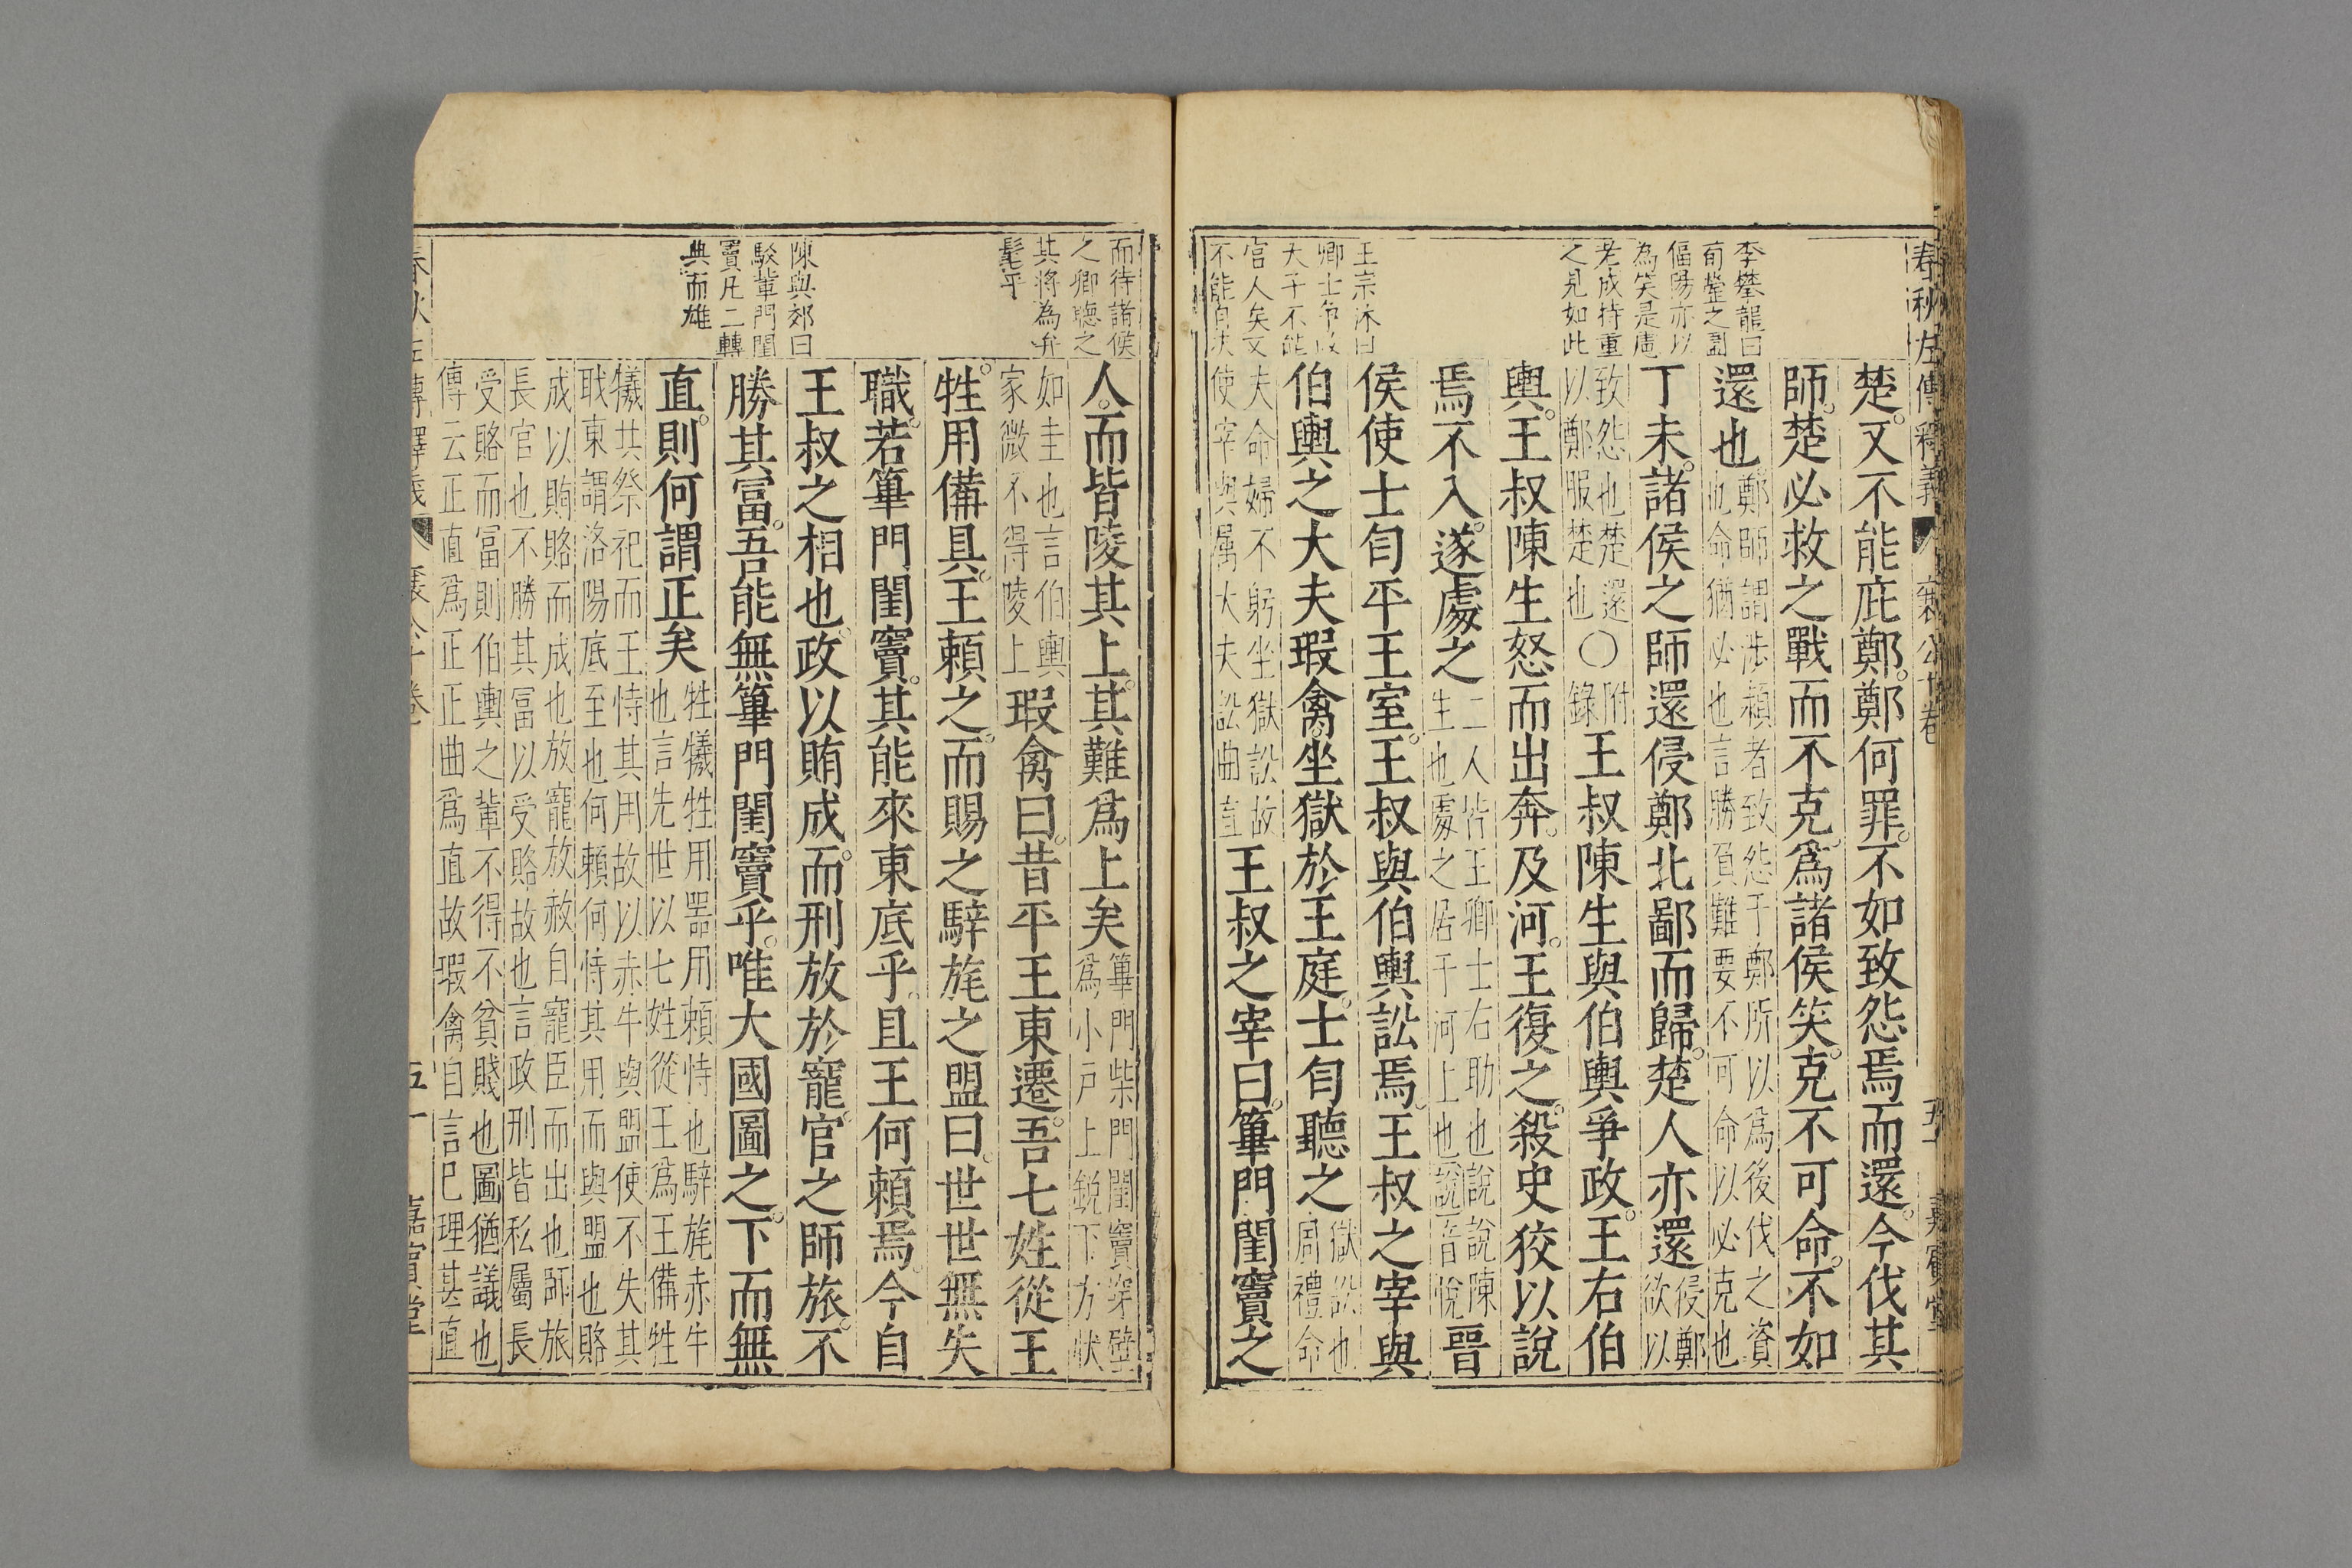 春秋左傳釋義 襄公十卷 五十 嘉賓堂
李攀龍曰
荀罃之圖
偪陽亦以
為笑是慮
老成持重
之見如此
王宗沐曰
卿士爭政
天子不能
官人矣又
不能自決
楚又不能庇鄭鄭何罪不如致怨焉而還今伐其
師楚必救之戰而不克爲諸侯笑克不可命不如
還也鄭師謂涉潁者致怨于鄭所以爲後伐之資
也命猶必也言勝負難要不可命以必克也
丁未諸侯之師還侵鄭北鄙而歸楚人亦還侵鄭
欲以
致怨也楚還〇附
以鄭服楚也 錄王叔陳生與伯輿爭政王右伯
輿王叔陳生怒而出奔及河王復之殺史狡以說
焉不入遂處之二人皆王卿士右助也說說陳
生也處之居于河上也說音悅晉
侯使士匄平王室王叔與伯輿訟焉王叔之宰與
伯輿之大夫瑕禽坐獄於王庭士匄聽之獄訟也
周禮命
夫命婦不躬坐獄訟故
使宰與屬大夫訟曲直王叔之宰曰篳門閨竇之
而待諸侯
之卿聽之
其將為弁
髦乎
陳與郊曰
駁篳門閨
竇凡二轉
典而雄
人而皆陵其上其難爲上矣篳門柴門閨竇穿壁
爲小戸上鋭下方狀
如圭也言伯輿
家微不得陵上瑕禽曰昔平王東遷吾七姓從王
牲用備具王賴之而賜之騂旄之盟曰世世無失
職若篳門閨竇其能來東底乎且王何賴焉今自
王叔之相也政以賄成而刑放於寵官之師旅不
勝其富吾能無篳門閨竇乎唯大國圖之下而無
直則何謂正矣牲犧牲用器用賴恃也騂旄赤牛
也言先世以七姓從王爲王備牲
犧共祭祀而王恃其用故以赤牛與盟使不失其
戝東謂洛陽底至也何賴何恃其用而與盟也賂
成以賄賂而成也放寵放赦自寵臣而出也師旅
長官也不勝其富以受賂故也言政刑皆私屬長
受賂而富則伯輿之輩不得不貧賤也圖猶議也
傳云正直爲正正曲爲直故瑕禽自言巳理甚直
春秋左傳釋義 襄公十卷 五十 嘉賓堂